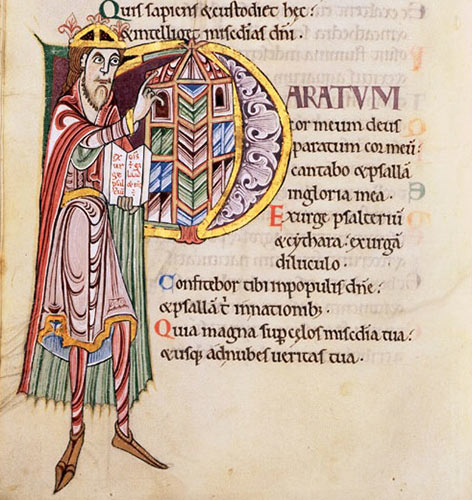 Quis sapiens & custodiet hęc:
& intelliget misedias dni
PARATVM
cor meum deus
paratum cor meū:
cantabo & psallā
in gloria mea.
Exurge psalteriū
& cythara: exurgā
diluculo.
Confitebor tibi in populis dne:
& psallā t in nationib;
Quia magna sup celos misedia tua:
& usq; ad nubes veritas tua.